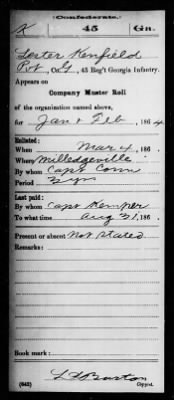 Confederate.
K 45 Ga.
Lester Kenfield
Pvt, Co. G, 45 Reg't Georgia Infantry.
Appears on
Company Muster Roll
of the organization named above,
for Jan & Feb, 1864
Enlisted:
When Mar 4, 186 .
Where Milledgeville
By whom Capt Conn
Period 3 yrs
Last paid:
By whom Capt Kemper
To what time Aug 31, 186 .
Present or absent Not Stated
Remarks:
Book mark:
(642) Copyist.